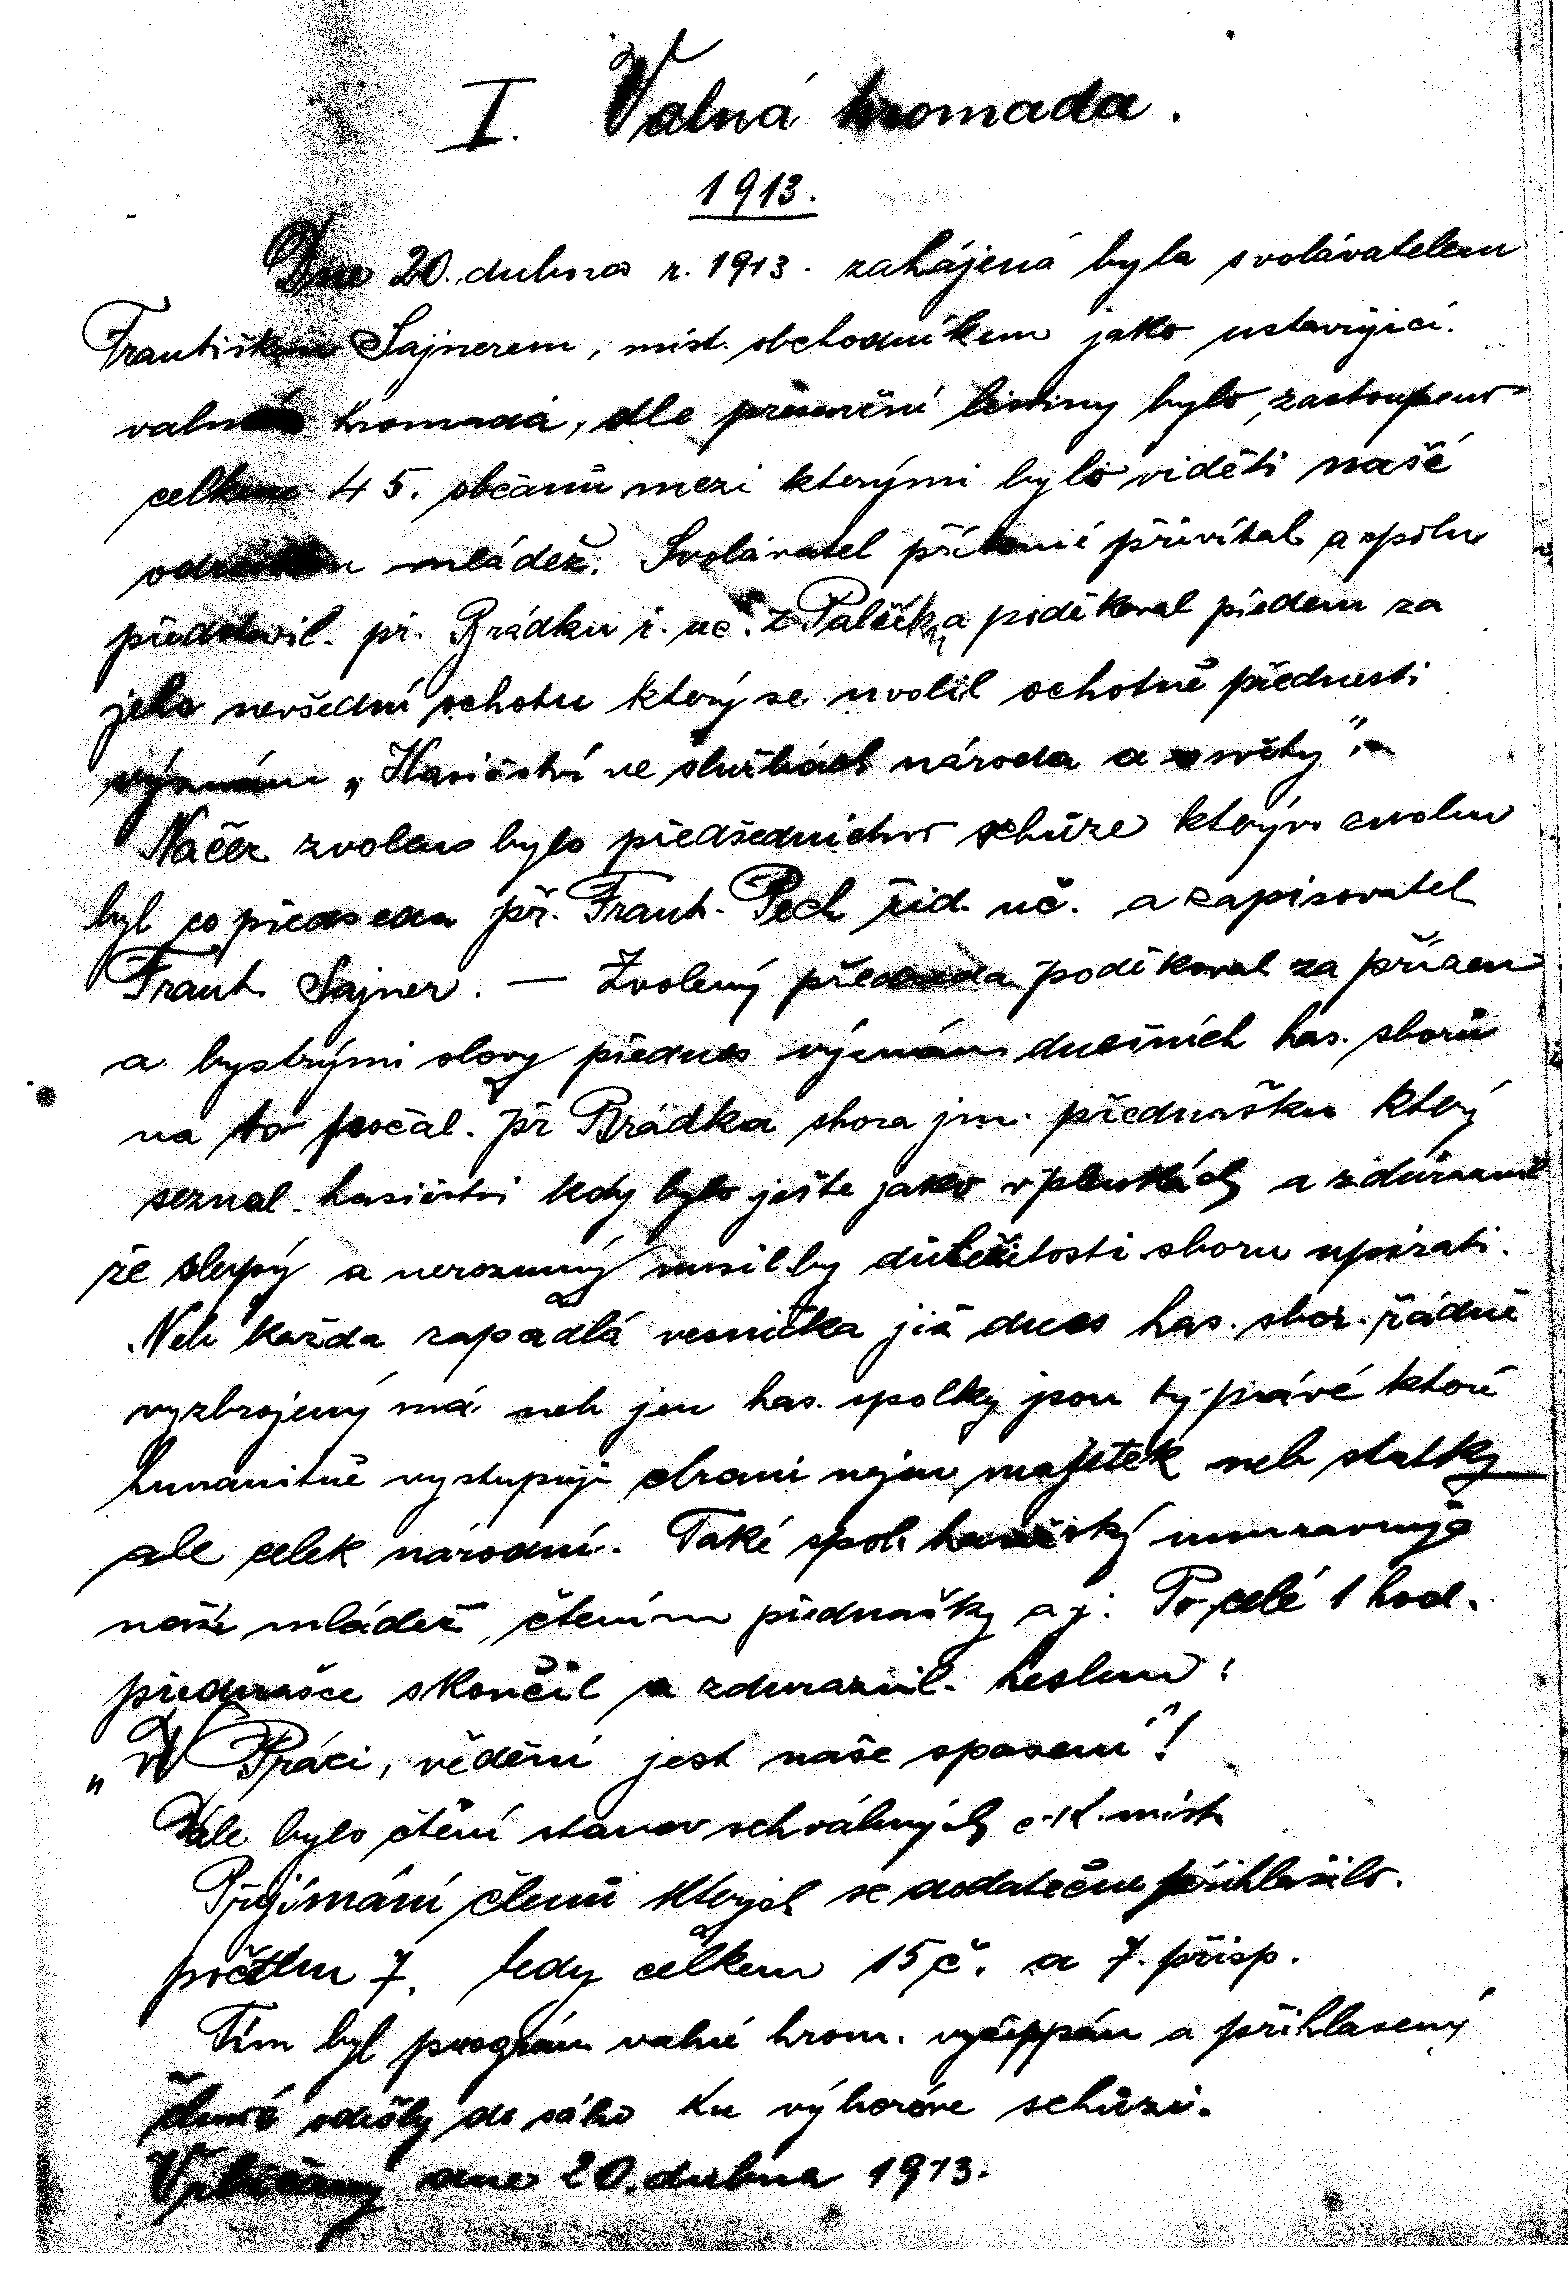 I. Valná hromada.
1913.
Dne 20. dubna r. 1913. zahájená byla svolávatelem
Františkem Sajnerem, míst. obchodníkem jako ustavující.
valná hromada, dle presenční listiny bylo zastoupeno
celkem 45. občanů mezi kterými bylo viděti naše
mládež. Svolávatel přítomné přivítal a spolu
představil. př. Brádku ř. uč. z Palečka poděkoval předem za
jeho nevšední ochotu který se uvolil ochotně přednesti
význam „Hasičství ve službách národa a osvěty".
Načež zvoleno bylo předsednictvo schůze kterým zvolen
byl co předseda př. Frant. Pech říd. uč. a zapisovatel
Frant. Sajner. — Zvolený předseda poděkoval za přízen
a bystrými slovy přednes význam dnešních has. sborů
na to počal. př Brádka shora jm. přednášku který
seznal. hasičství kdy bylo ješte jako v plenkách a zdůraznil
že slepý a nerozumný musil by důležitosti sboru upírati.
Neb každa zapadlá vesnička již dnes has. sbor. řádně
vyzbrojený má neb jen has. spolky jsou ty právé ktoré
humanitně vystupují chraní nejen majetek neb statky
ale celek národní. Také spol. hasičský
naši mládež, čtením přednašky a j. Po celé 1 hod.
přednašce skončil a zduraznil. heslem:
„V Práci, vědění jest naše spasení"!
Dále bylo čtění stanov schválených c. k. míst.
Přijímání členů kterych se dodatečne přihlasilo.
počtem 7. tedy celkem 15 č. a 7. přisp.
Tím byl program valné hrom. vyčerpán a přihlasený
členové odešly do ku výborove schůzi.
dne 20. dubna 1913.